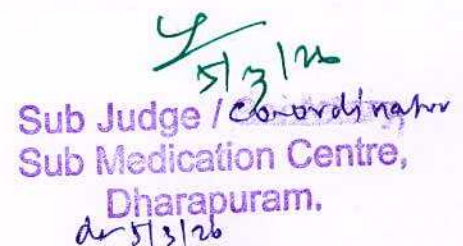 5/3/26
Sub Judge / Co-ordinator
Sub Medication Centre,
Dharapuram.
5/3/26